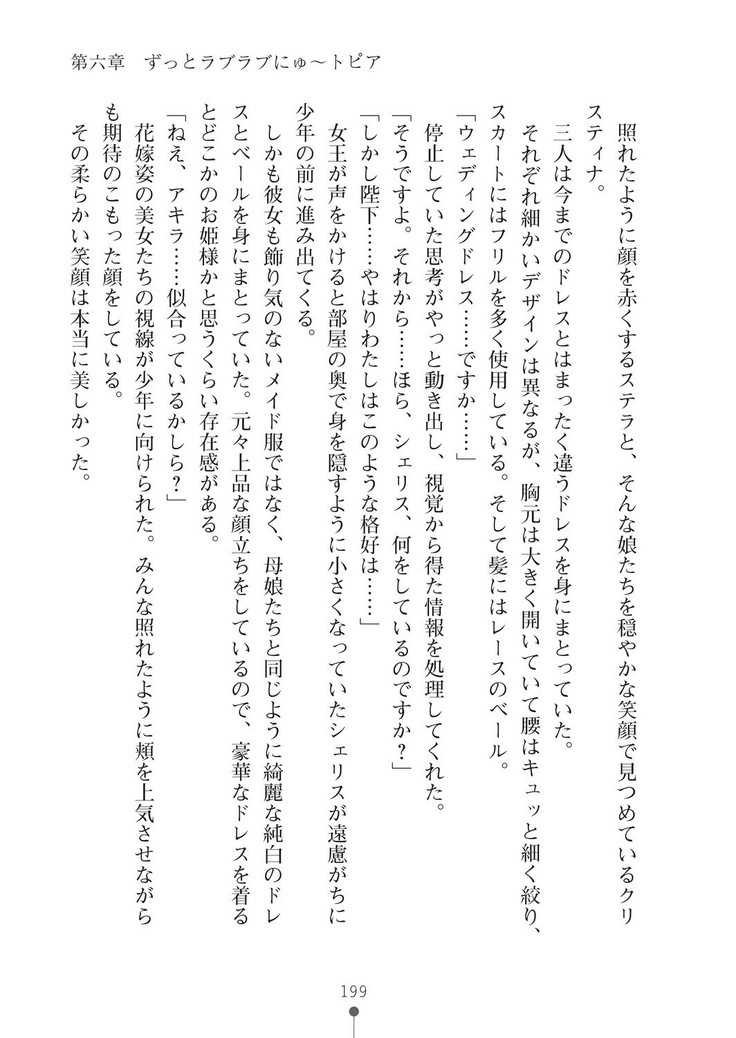 第六章　ずっとラブラブにゅ～トピア
　照れたように顔を赤くするステラと、そんな娘たちを穏やかな笑顔で見つめているクリ
スティナ。
　三人は今までのドレスとはまったく違うドレスを身にまとっていた。
　それぞれ細かいデザインは異なるが、胸元は大きく開いていて腰はキュッと細く絞り、
スカートにはフリルを多く使用している。そして髪にはレースのベール。
「ウェディングドレス……ですか……」
　停止していた思考がやっと動き出し、視覚から得た情報を処理してくれた。
「そうですよ。それから……ほら、シェリス、何をしているのですか？」
「しかし陛下……やはりわたしはこのような格好は……」
　女王が声をかけると部屋の奥で身を隠すように小さくなっていたシェリスが遠慮がちに
少年の前に進み出てくる。
　しかも彼女も飾り気のないメイド服ではなく、母娘たちと同じように綺麗な純白のドレ
スとベールを身にまとっていた。元々上品な顔立ちをしているので、豪華なドレスを着る
とどこかのお姫様かと思うくらい存在感がある。
「ねえ、アキラ……似合っているかしら？」
　花嫁姿の美女たちの視線が少年に向けられた。みんな照れたように頬を上気させながら
も期待のこもった顔をしている。
　その柔らかい笑顔は本当に美しかった。
199